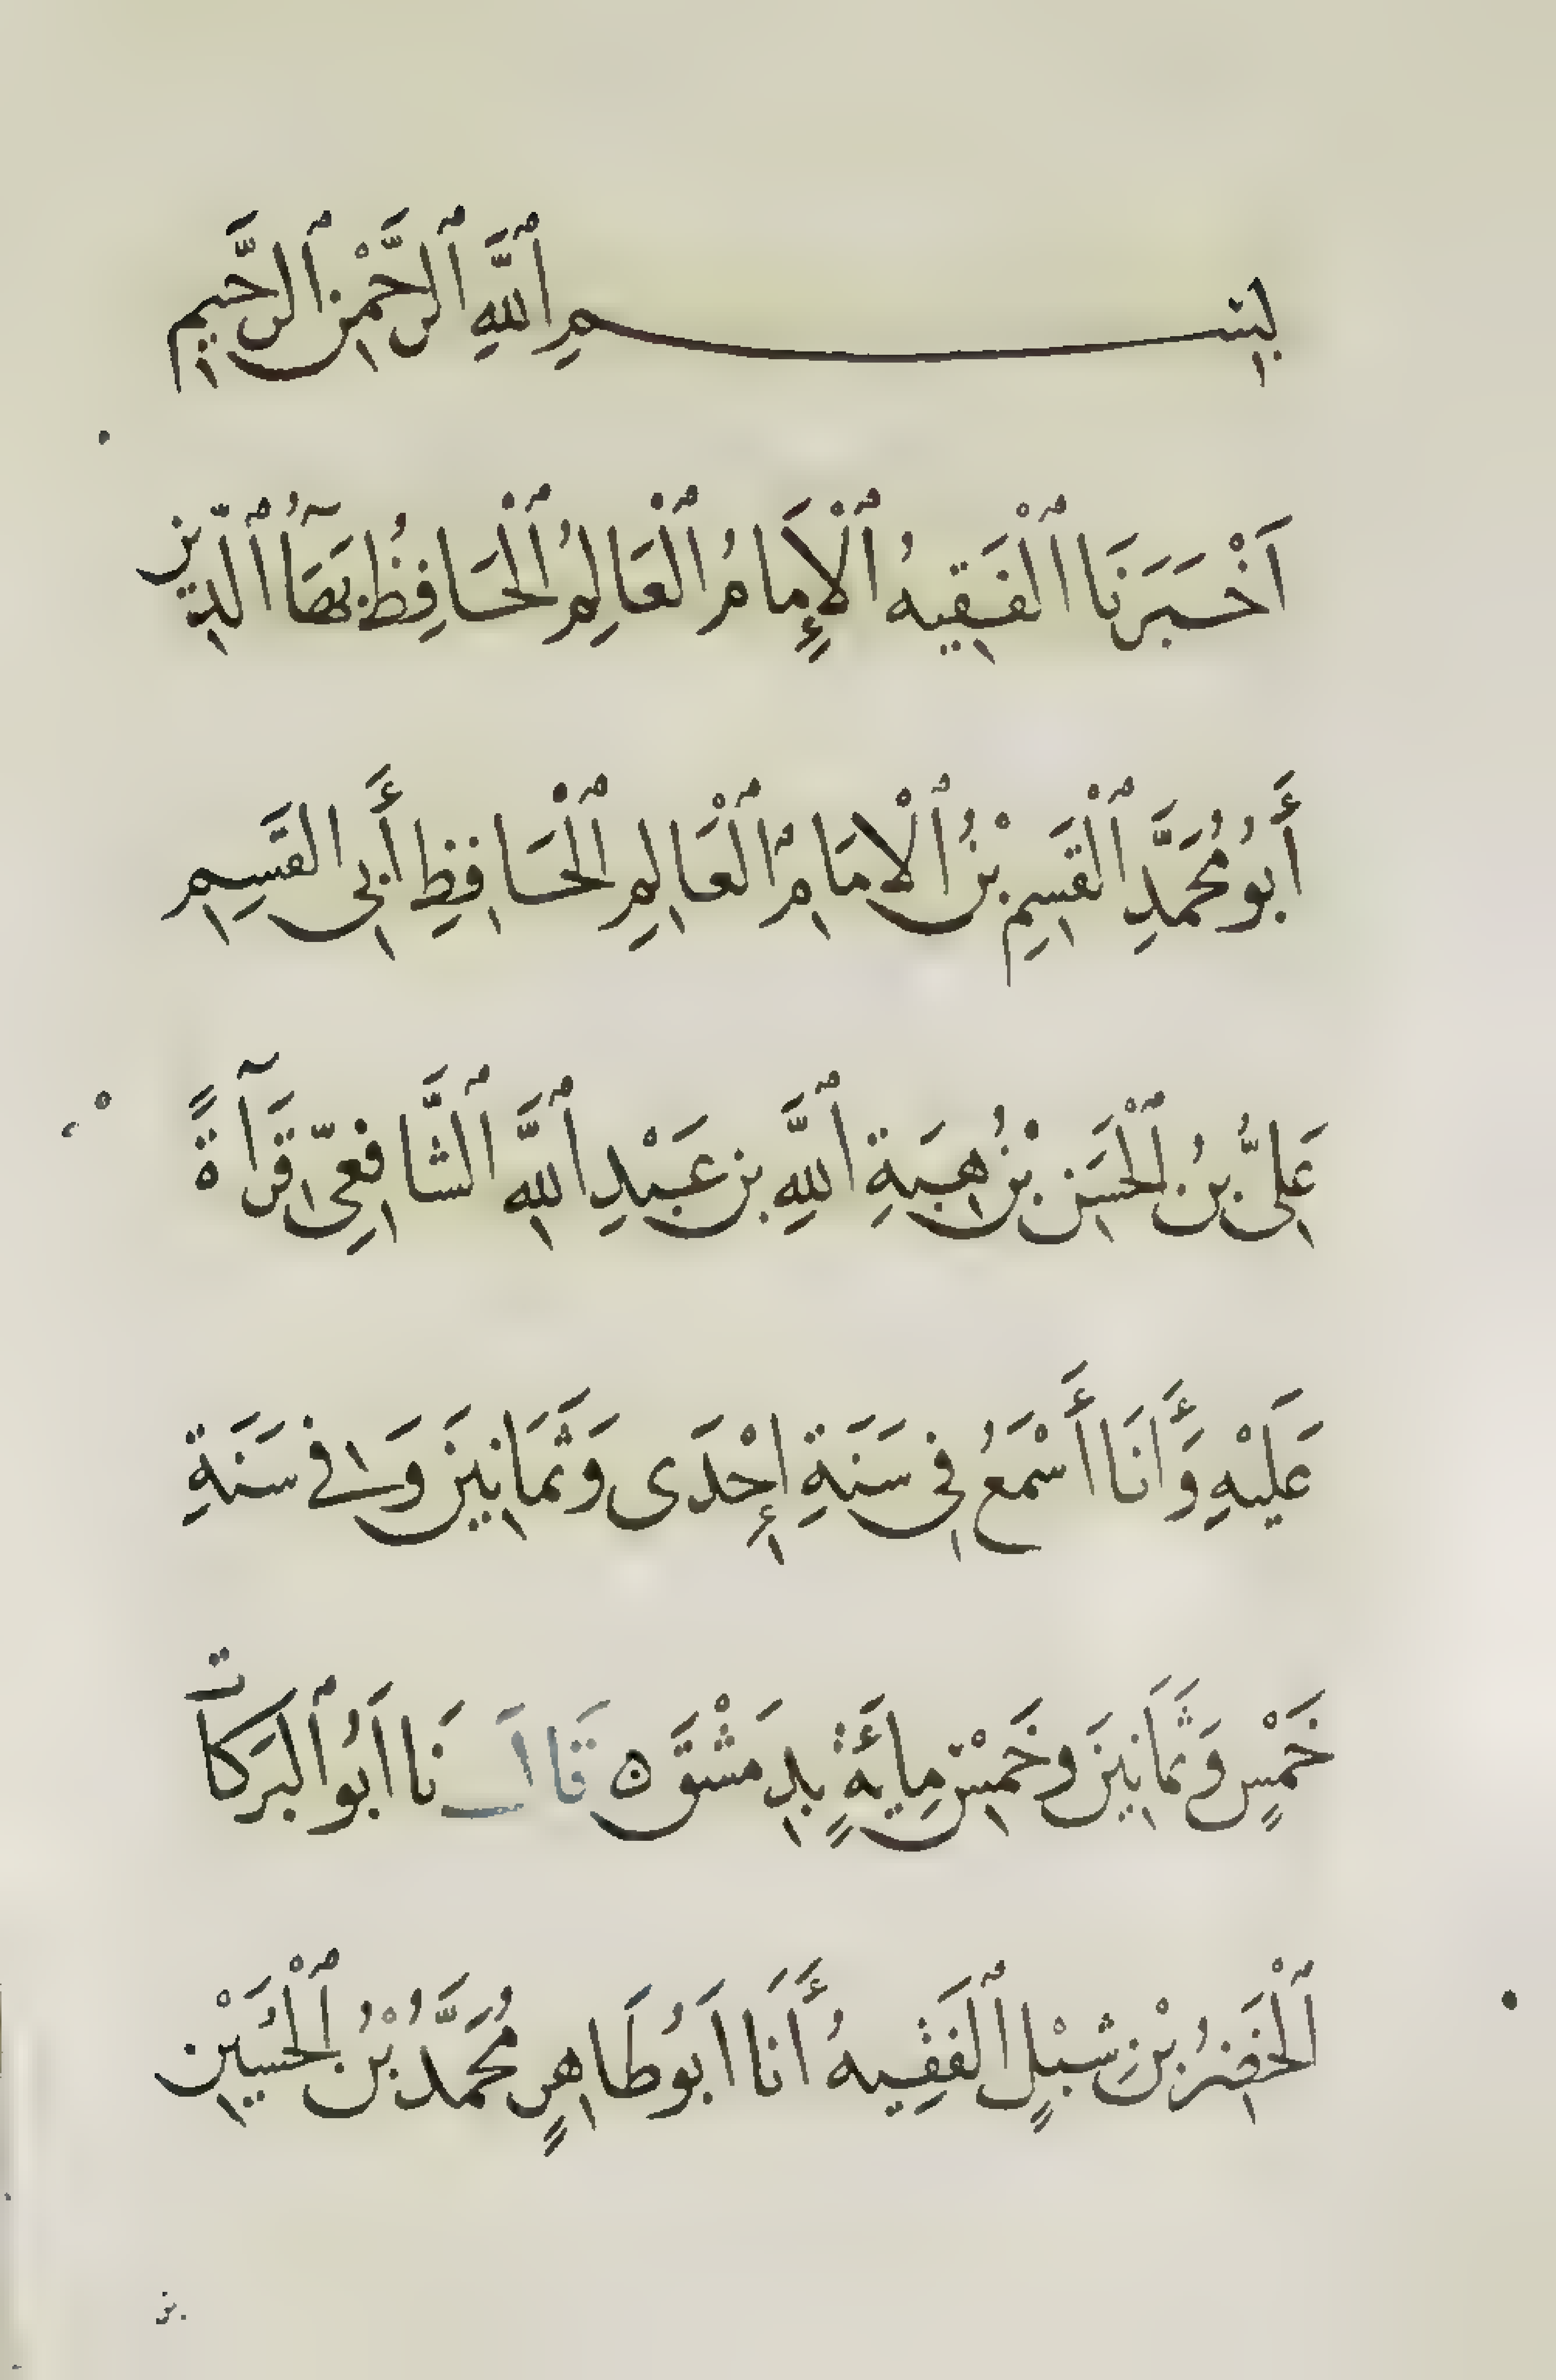 بِسْمِ ٱللَّهِ ٱلرَّحْمٰنِ ٱلرَّحِيمِ
اَخْبَرَنَا ٱلْفَقِيهُ ٱلْإِمَامُ ٱلْعَالِمُ ٱلْحَافِظُ بَهَآءُ ٱلدِّينِ
أَبُو مُحَمَّدِ ٱلْقَسِمِ بْنُ ٱلْامَامِ ٱلْعَالِمِ ٱلْحَافِظِ أَبِي القَسِمِ
عَلِيُّ بنُ ٱلْحَسَنِ بْنُ هِبَةِ ٱللَّهِ بنِ عَبْدِ ٱللَّهِ ٱلشَّافِعِيِّ قِرَآةً
عَلَيْهِ وَأَنَا أَسْمَعُ فِي سَنَةِ إِحْدَى وَثَمَانِينَ وَفِي سَنَةِ
خَمْسٍ وَثَمَانِينَ وخَمْسِ مِايَةٍ بِدِمَشْقَ ه قَالَ نَا اَبُو ٱلبَرَكاَتِ
ٱلْخَضِرُ بْنِ شِبْلٍ ٱلفَقِيهُ أَنَا اَبُو طَاهِرٍ مُحَمَّدُ بْنُ ٱلْحُسَيْنِ